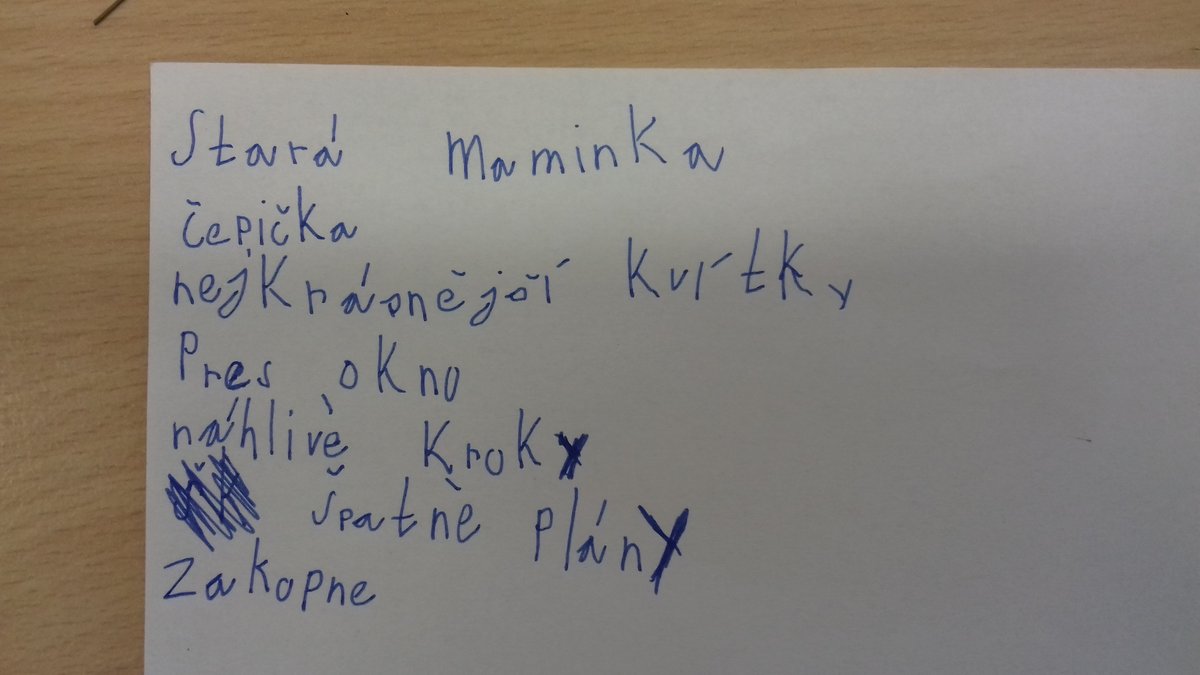 Stará maminka
čepička
nejkrásnější kvítky
Pres okno
náhlivè kroky
špatnè plány
zakopne